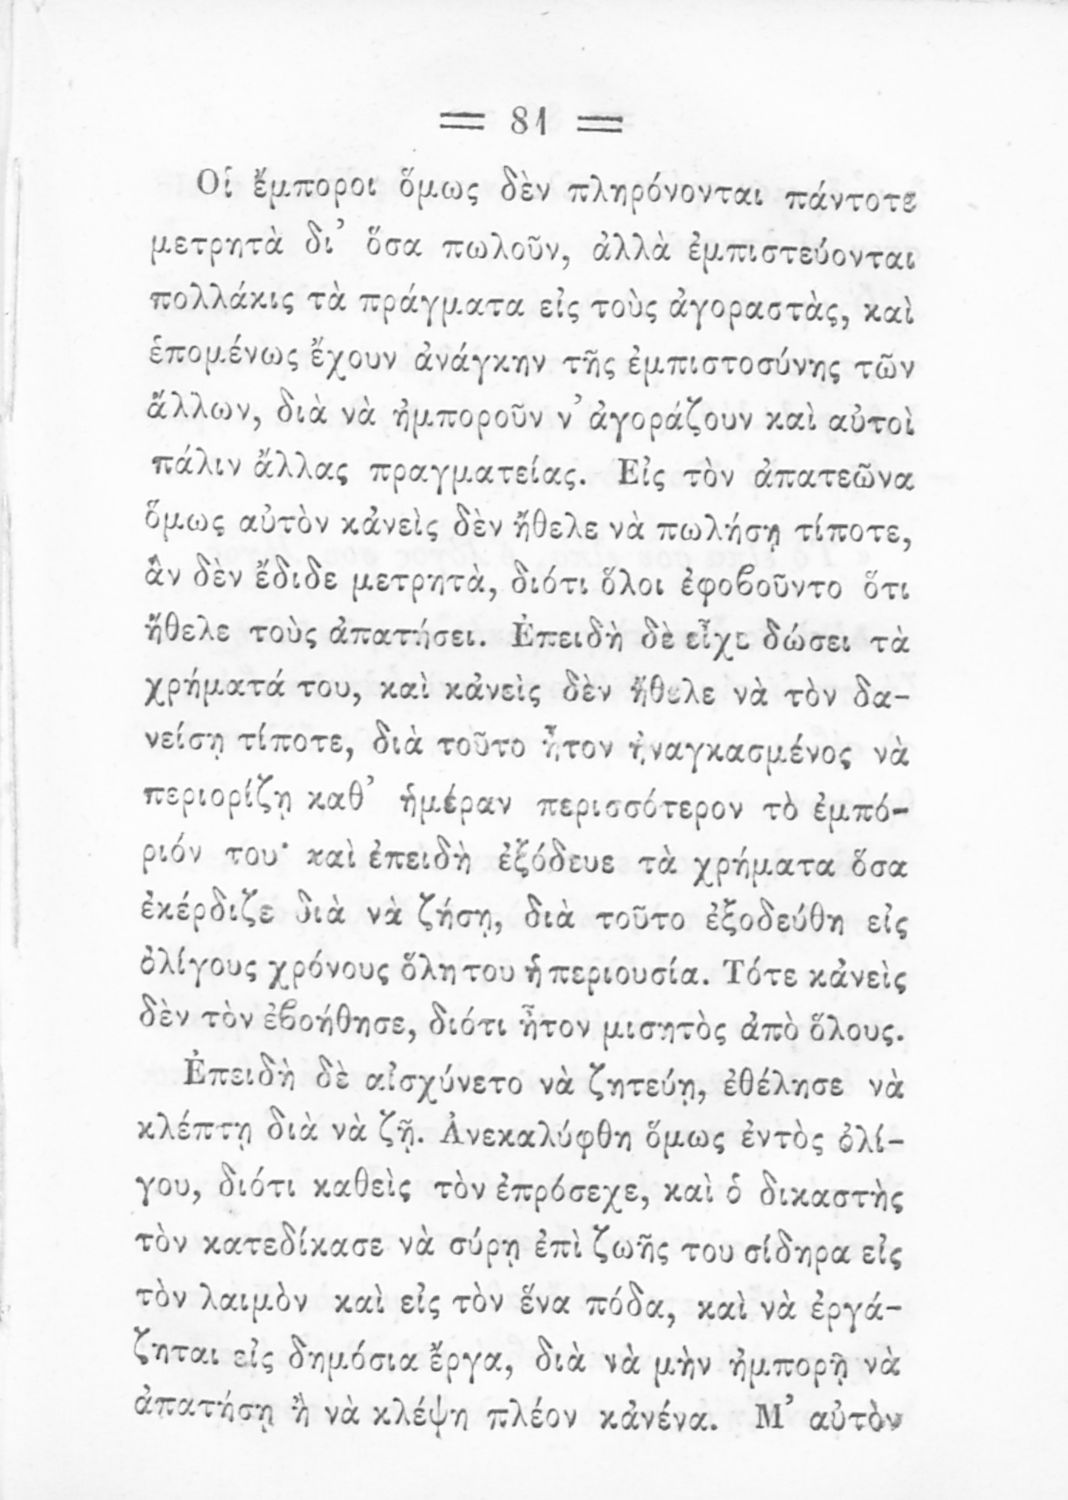 = 81 =
Οἱ ἔμποροι ὅμως δὲν πληρόνονται πάντοτε
μετρητὰ δι' ὅσα πωλοῦν, ἀλλὰ ἐμπιστεύονται
πολλάκις τὰ πράγματα εἰς τοὺς ἀγοραστὰς, καὶ
ἑπομένως ἔχουν ἀνάγκην τῆς ἐμπιστοσύνης τῶν
ἄλλων, διὰ νὰ ἠμποροῦν ν' ἀγοράζουν καὶ αὐτοὶ
πάλιν ἄλλας πραγματείας. Εἰς τὸν ἀπατεῶνα
ὅμως αὐτὸν κἀνεὶς δὲν ἤθελε νὰ πωλήσῃ τίποτε,
ἂν δὲν ἔδιδε μετρητὰ, διότι ὅλοι ἐφοβοῦντο ὅτι
ἤθελε τοὺς ἀπατήσει. Ἐπειδὴ δὲ εἶχε δώσει τὰ
χρήματά του, καὶ κἀνεὶς δὲν ἤθελε νὰ τὸν δα-
νείσῃ τίποτε, διὰ τοῦτο ἦτον ἠναγκασμένος νὰ
περιορίζῃ καθ' ἡμέραν περισσότερον τὸ ἐμπό-
ριόν του· καὶ ἐπειδὴ ἐξόδευε τὰ χρήματα ὅσα
ἐκέρδιζε διὰ νὰ ζήσῃ, διὰ τοῦτο ἐξοδεύθη εἰς
ὀλίγους χρόνους ὅλη του ἡ περιουσία. Τότε κἀνεὶς
δὲν τὸν ἐβοήθησε, διότι ἦτον μισητὸς ἀπὸ ὅλους.
Ἐπειδὴ δὲ αἰσχύνετο νὰ ζητεύῃ, ἐθέλησε νὰ
κλέπτῃ διὰ νὰ ζῇ. Ἀνεκαλύφθη ὅμως ἐντὸς ὀλί-
γου, διότι καθεὶς τὸν ἐπρόσεχε, καὶ ὁ δικαστὴς
τὸν κατεδίκασε νὰ σύρῃ ἐπὶ ζωῆς του σίδηρα εἰς
τὸν λαιμὸν καὶ εἰς τὸν ἕνα πόδα, καὶ νὰ ἐργά-
ζηται εἰς δημόσια ἔργα, διὰ νὰ μὴν ἠμπορῇ νὰ
ἀπατήσῃ ἢ νὰ κλέψῃ πλέον κἀνένα. Μ' αὐτὸν